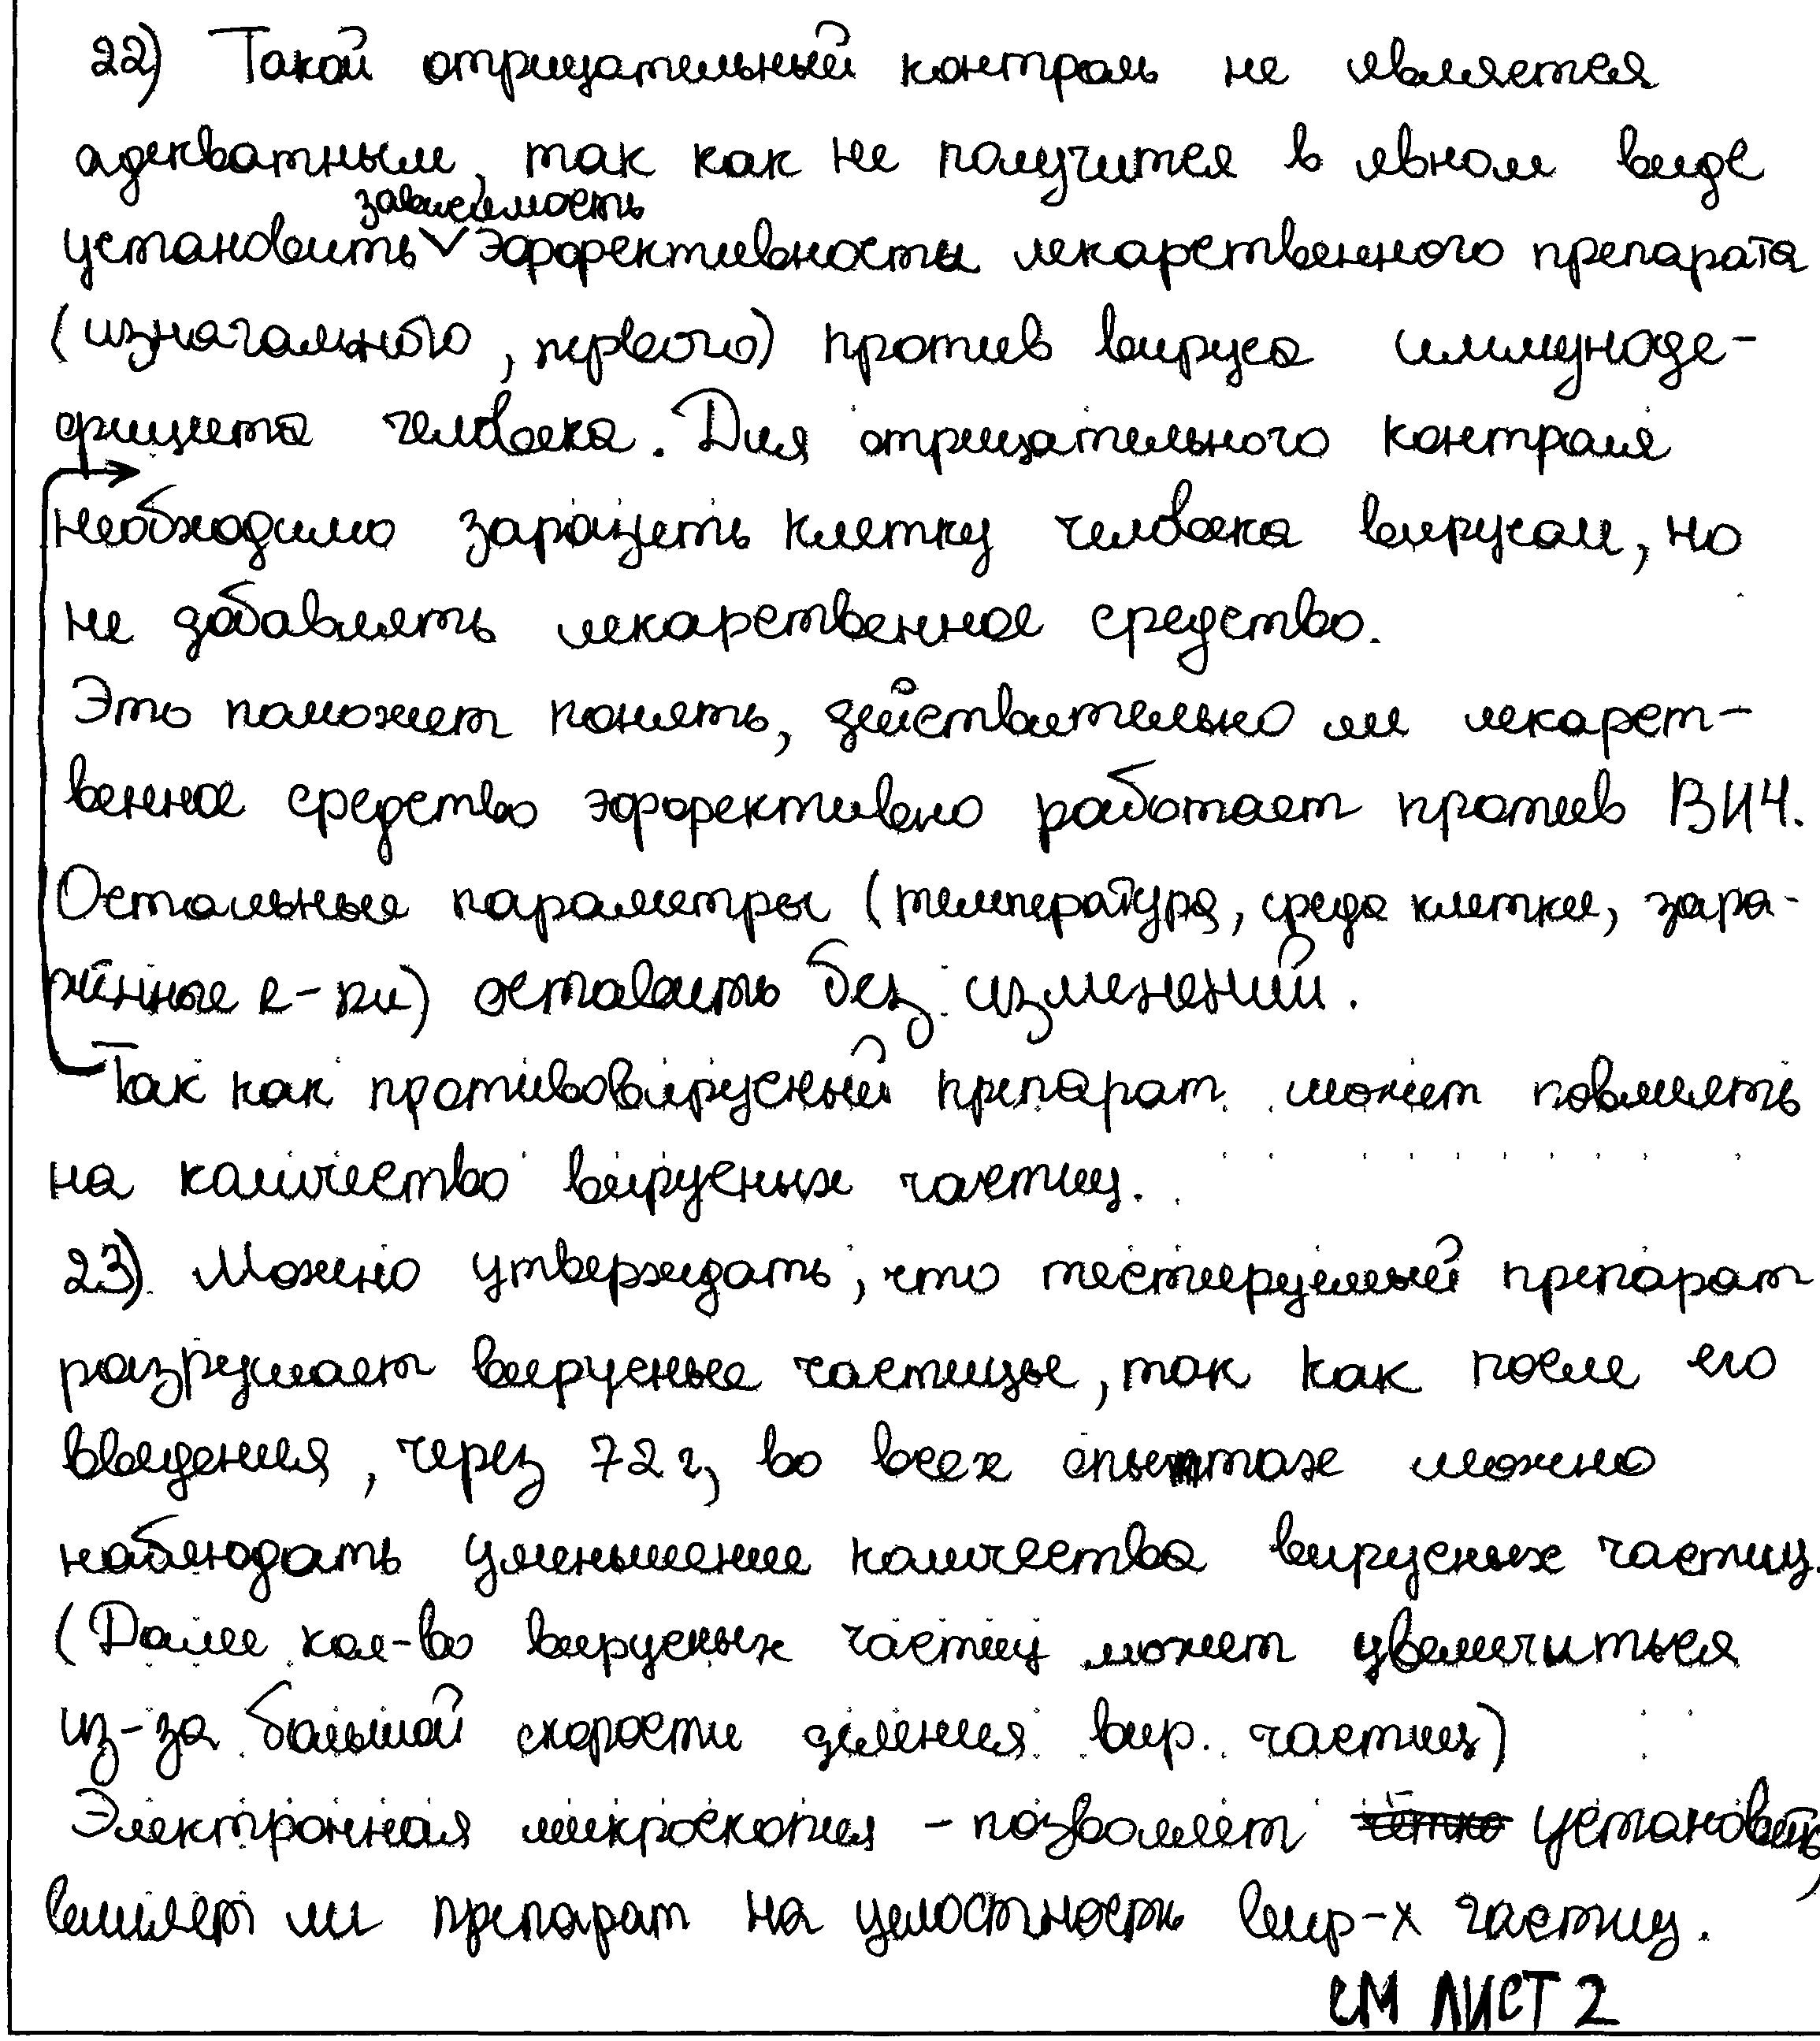 22) Такой отрицательный контроль не является
адекватным, так как не получится в явном виде
зависимость
установить ∨ эффективности лекарственного препарата
(изначального, первого) против вируса иммуноде-
фицита человека. Для отрицательного контроля
необходимо заразить клетку человека вирусом, но
не добавлять лекарственное средство.
Это поможет понять, действительно ли лекарст-
венное средство эффективно работает против ВИЧ.
Остальные параметры (температура, среда клетки, зара-
жённые к-ки) оставить без изменений.
Так как противовирусный препарат может повлиять
на количество вирусных частиц.
23). Можно утверждать, что тестируемый препарат
разрушает вирусные частицы, так как после его
введения, через 72 ч, во всех опытах можно
наблюдать уменьшение количества вирусных частиц.
(Далее кол-во вирусных частиц может увеличиться
из-за большой скорости деления вир. частиц)
Электронная микроскопия - позволяет чётко установить,
влияет ли препарат на целостность вир-х частиц.
СМ ЛИСТ 2